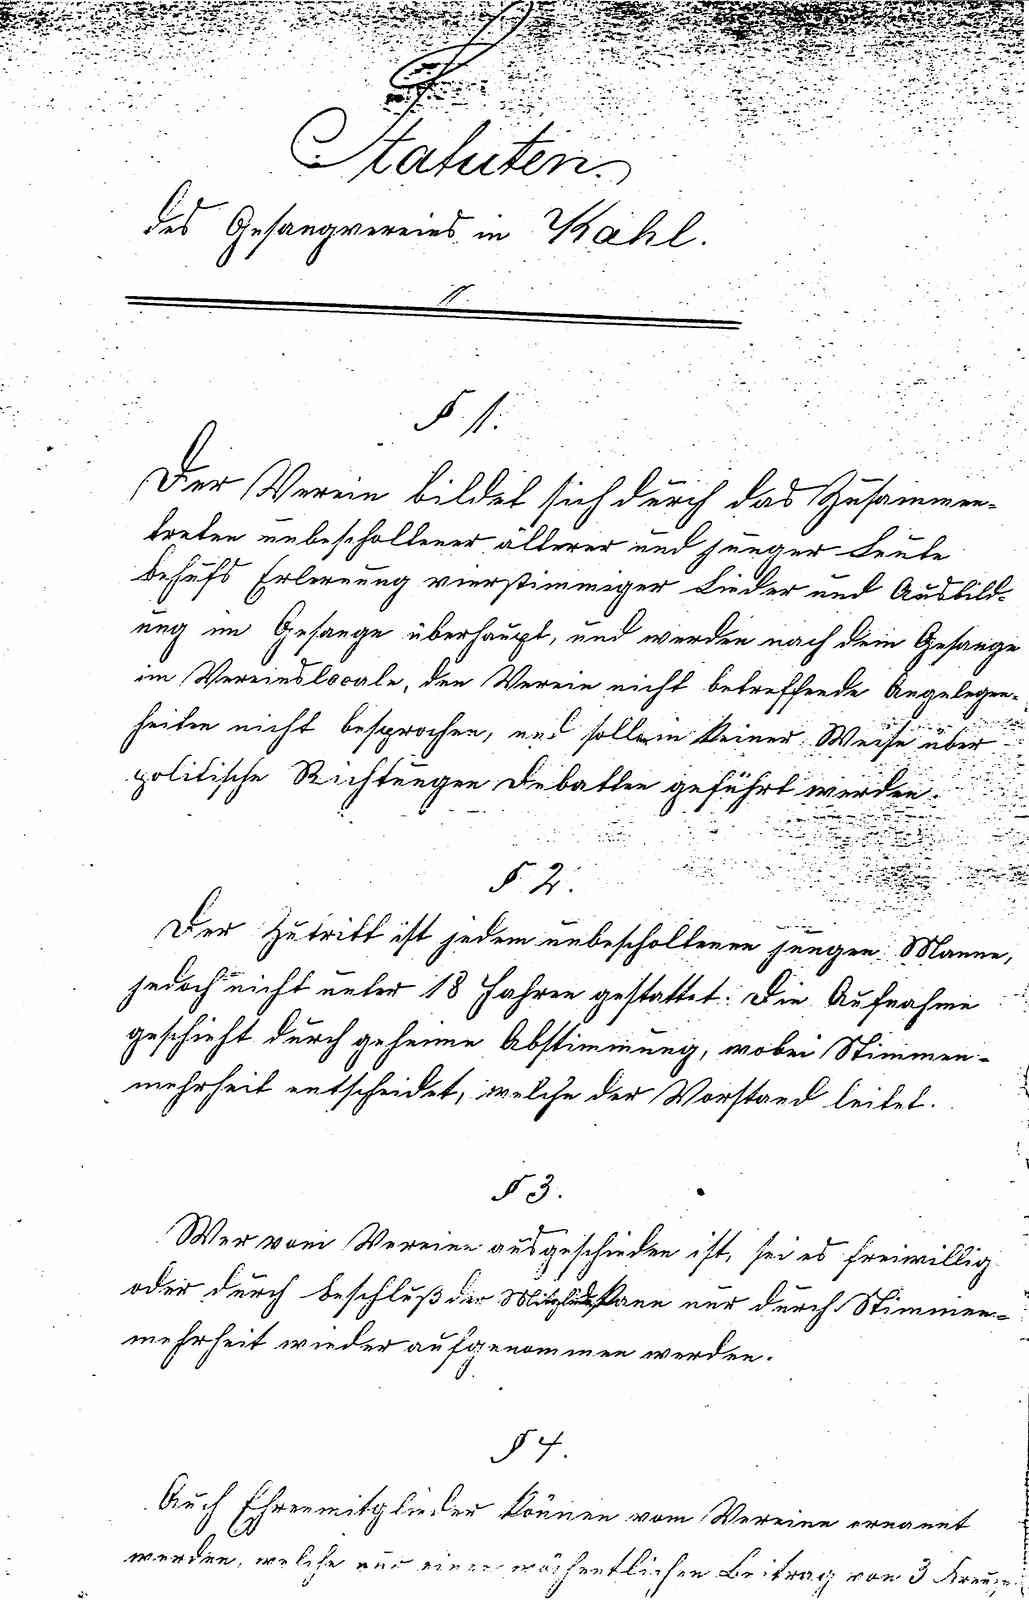 Statuten.
des Gesangvereins in Kahl.
§ 1.
Der Verein bildet sich durch das Zusammen-
treten unbescholtener älterer und junger Leute
behufs Erlernung vierstimmiger Lieder und Ausbild-
ung im Gesange überhaupt, und werden nach dem Gesange
im Vereinslocale, den Verein nicht betreffende Angelegen-
heiten nicht besprochen, und soll in keiner Weise über
politische Richtungen Debatten geführt werden.
§ 2.
Der Zutritt ist jedem unbescholtenen jungen Manne,
jedoch nicht unter 18 Jahren gestattet. Die Aufnahme
geschieht durch geheime Abstimmung, wobei Stimmen-
mehrheit entscheidet, welche der Vorstand leitet.
§ 3.
Wer vom Vereine ausgeschieden ist, sei es freiwillig
oder durch Beschluß der Mitglieder kann nur durch Stimmen-
mehrheit wieder aufgenommen werden.
§ 4.
Auch Ehrenmitglieder können vom Vereine ernannt
werden, welche nur einen wöchentlichen Beitrag von 3 Kreuzer